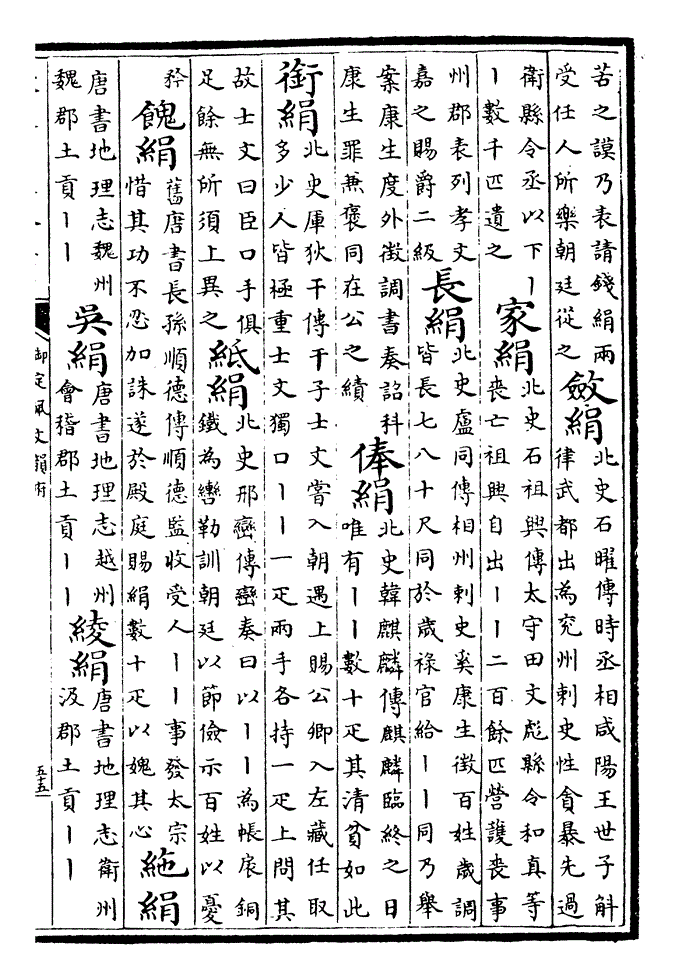 苦之謨乃表請錢絹兩
受任人所樂朝廷從之
斂絹
北史石曜傳時丞相咸陽王世子斛
律武都出為兖州刺史性貪暴先過
衛縣令丞以下丨
丨數千匹遺之
家絹
北史石祖興傳太守田文彪縣令和真等
喪亡祖興自出丨丨二百餘匹營護喪事
州郡表列孝文
嘉之賜爵二級
長絹
北史盧同傳相州刺史奚康生徵百姓歲調
皆長七八十尺同於歲祿官給丨丨同乃舉
案康生度外徵調書奏詔科
康生罪兼褒同在公之績
俸絹
北史韓麒麟傳麒麟臨終之日
唯有丨丨數十疋其清貧如此
銜絹
北史庫狄干傳干子士文嘗入朝遇上賜公卿入左藏任取
多少人皆極重士文獨口丨丨一疋兩手各持一疋上問其
故士文曰臣口手俱
足餘無所須上異之
紙絹
北史邢巒傳巒奏曰以丨丨為帳扆銅
鐵為轡勒訓朝廷以節儉示百姓以憂
矜
餽絹
舊唐書長孫順德傳順德監收受人丨丨事發太宗
惜其功不忍加誅遂於殿庭賜絹數十疋以媿其心
絁絹
唐書地理志魏州
魏郡土貢丨丨
吳絹
唐書地理志越州
會稽郡土貢丨丨
綾絹
唐書地理志衛州
汲郡土貢丨丨
御定佩文韻府
五十五